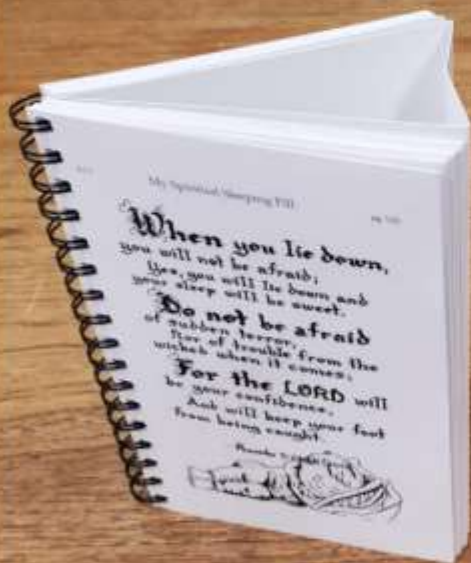 My Spiritual Sleeping Pill
When you lie down,
you will not be afraid;
Yes, you will lie down and
your sleep will be sweet.
Do not be afraid
of sudden terror,
Nor of trouble from the
wicked when it comes;
For the LORD will
be your confidence,
And will keep your foot
from being caught.
Proverbs